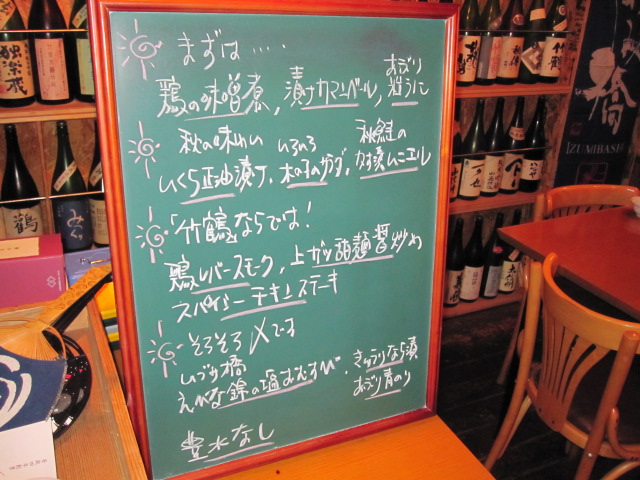 まずは・・・・
鶏の味噌煮、漬けカマンベール、
あぶり
粒うに
秋の味わい
いくら正油漬け、
いろいろ
木の子のサラダ、
秋鮭の
かす漬ムニエル
「竹鶴」ならでは!
鶏レバースモーク、上ガツ甜麺醤炒め
スパイシーチキンステーキ
そろそろ〆です
いづみ橋
えびな錦の塩おむすび・
きゅうりなら漬
あぶり青のり
豊水なし
IZUMIBASHI
橋
独楽蔵
竹鶴
鶴